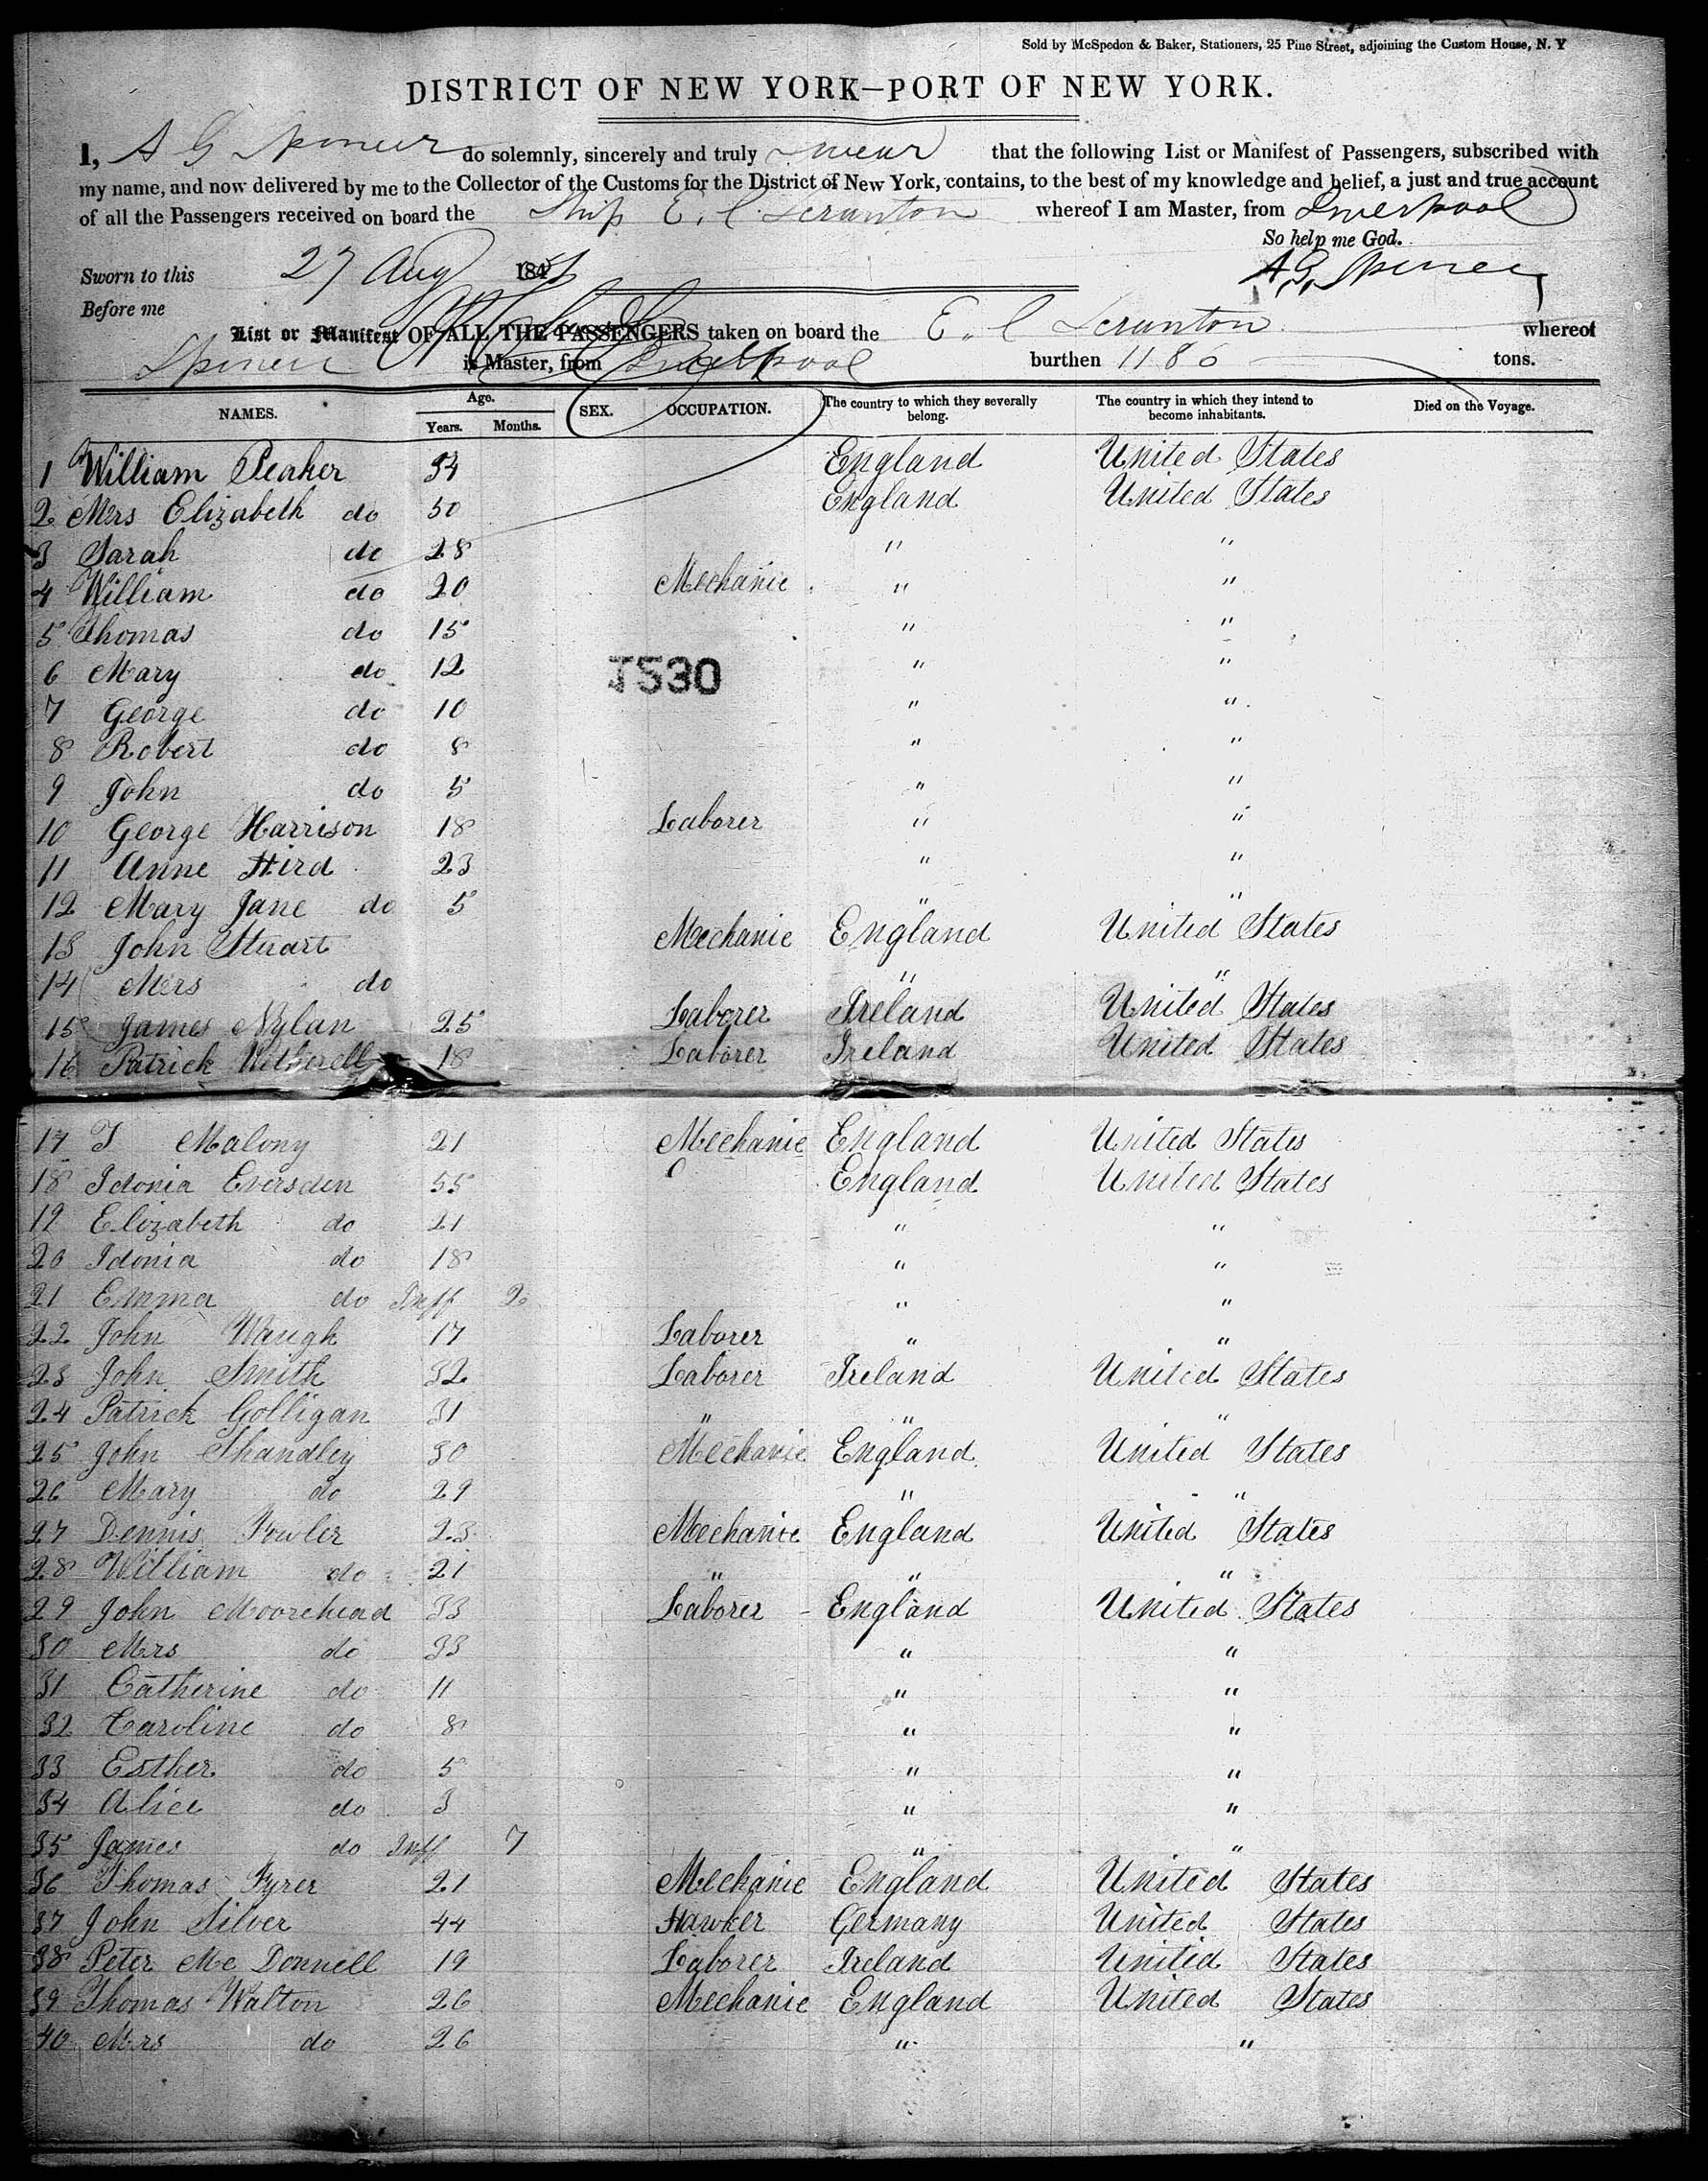 Sold by McSpedon & Baker, Stationers, 25 Pine Street, adjoining the Custom House, N. Y
DISTRICT OF NEW YORK—PORT OF NEW YORK.
I, A G Spencer do solemnly, sincerely and truly swear that the following List or Manifest of Passengers, subscribed with
my name, and now delivered by me to the Collector of the Customs for the District of New York, contains, to the best of my knowledge and belief, a just and true account
of all the Passengers received on board the Ship E. C Scranton whereof I am Master, from Liverpool
So help me God.
Sworn to this 27 Aug 184
A G, Spencer
Before me
List or Manifest OF ALL THE PASSENGERS taken on board the E. C Scranton whereof
Spencer is Master, from Liverpool burthen 1186 tons.
NAMES. Age. Years. Months. SEX. OCCUPATION. The country to which they severally belong. The country in which they intend to become inhabitants. Died on the Voyage.
1 William Peaker 54 England United States
2 Mrs Elizabeth do 50 England United States
3 Sarah do 28 " "
4 William do 20 Mechanic " "
5 Thomas do 15 " "
6 Mary do 12 " "
1530
7 George do 10 " "
8 Robert do 8 " "
9 John do 5 " "
10 George Harrison 18 Laborer " "
11 Anne Hird 23 " "
12 Mary Jane do 5 " "
13 John Stuart Mechanic England United States
14 Mrs do " "
15 James Nylan 25 Laborer Ireland United States
16 Patrick Witherell 18 Laborer Ireland United States
17 T Malony 21 Mechanic England United States
18 Idonia Eversden 55 England United States
19 Elizabeth do 21 " "
20 Idonia do 18 " "
21 Emma do Inff 2 " "
22 John Waugh 17 Laborer " "
23 John Smith 32 Laborer Ireland United States
24 Patrick Golligan 31 " " "
25 John Shandley 30 Mechanic England United States
26 Mary do 29 " "
27 Dennis Fowler 23 Mechanic England United States
28 William do 21 " " "
29 John Moorehead 33 Laborer England United States
30 Mrs do 33 " "
31 Catherine do 11 " "
32 Caroline do 8 " "
33 Esther do 5 " "
34 Alice do 3 " "
35 James do Inff 7 " "
36 Thomas Fyrer 21 Mechanic England United States
37 John Silver 44 Hawker Germany United States
38 Peter Mc Donnell 19 Laborer Ireland United States
39 Thomas Walton 26 Mechanic England United States
40 Mrs do 26 " "